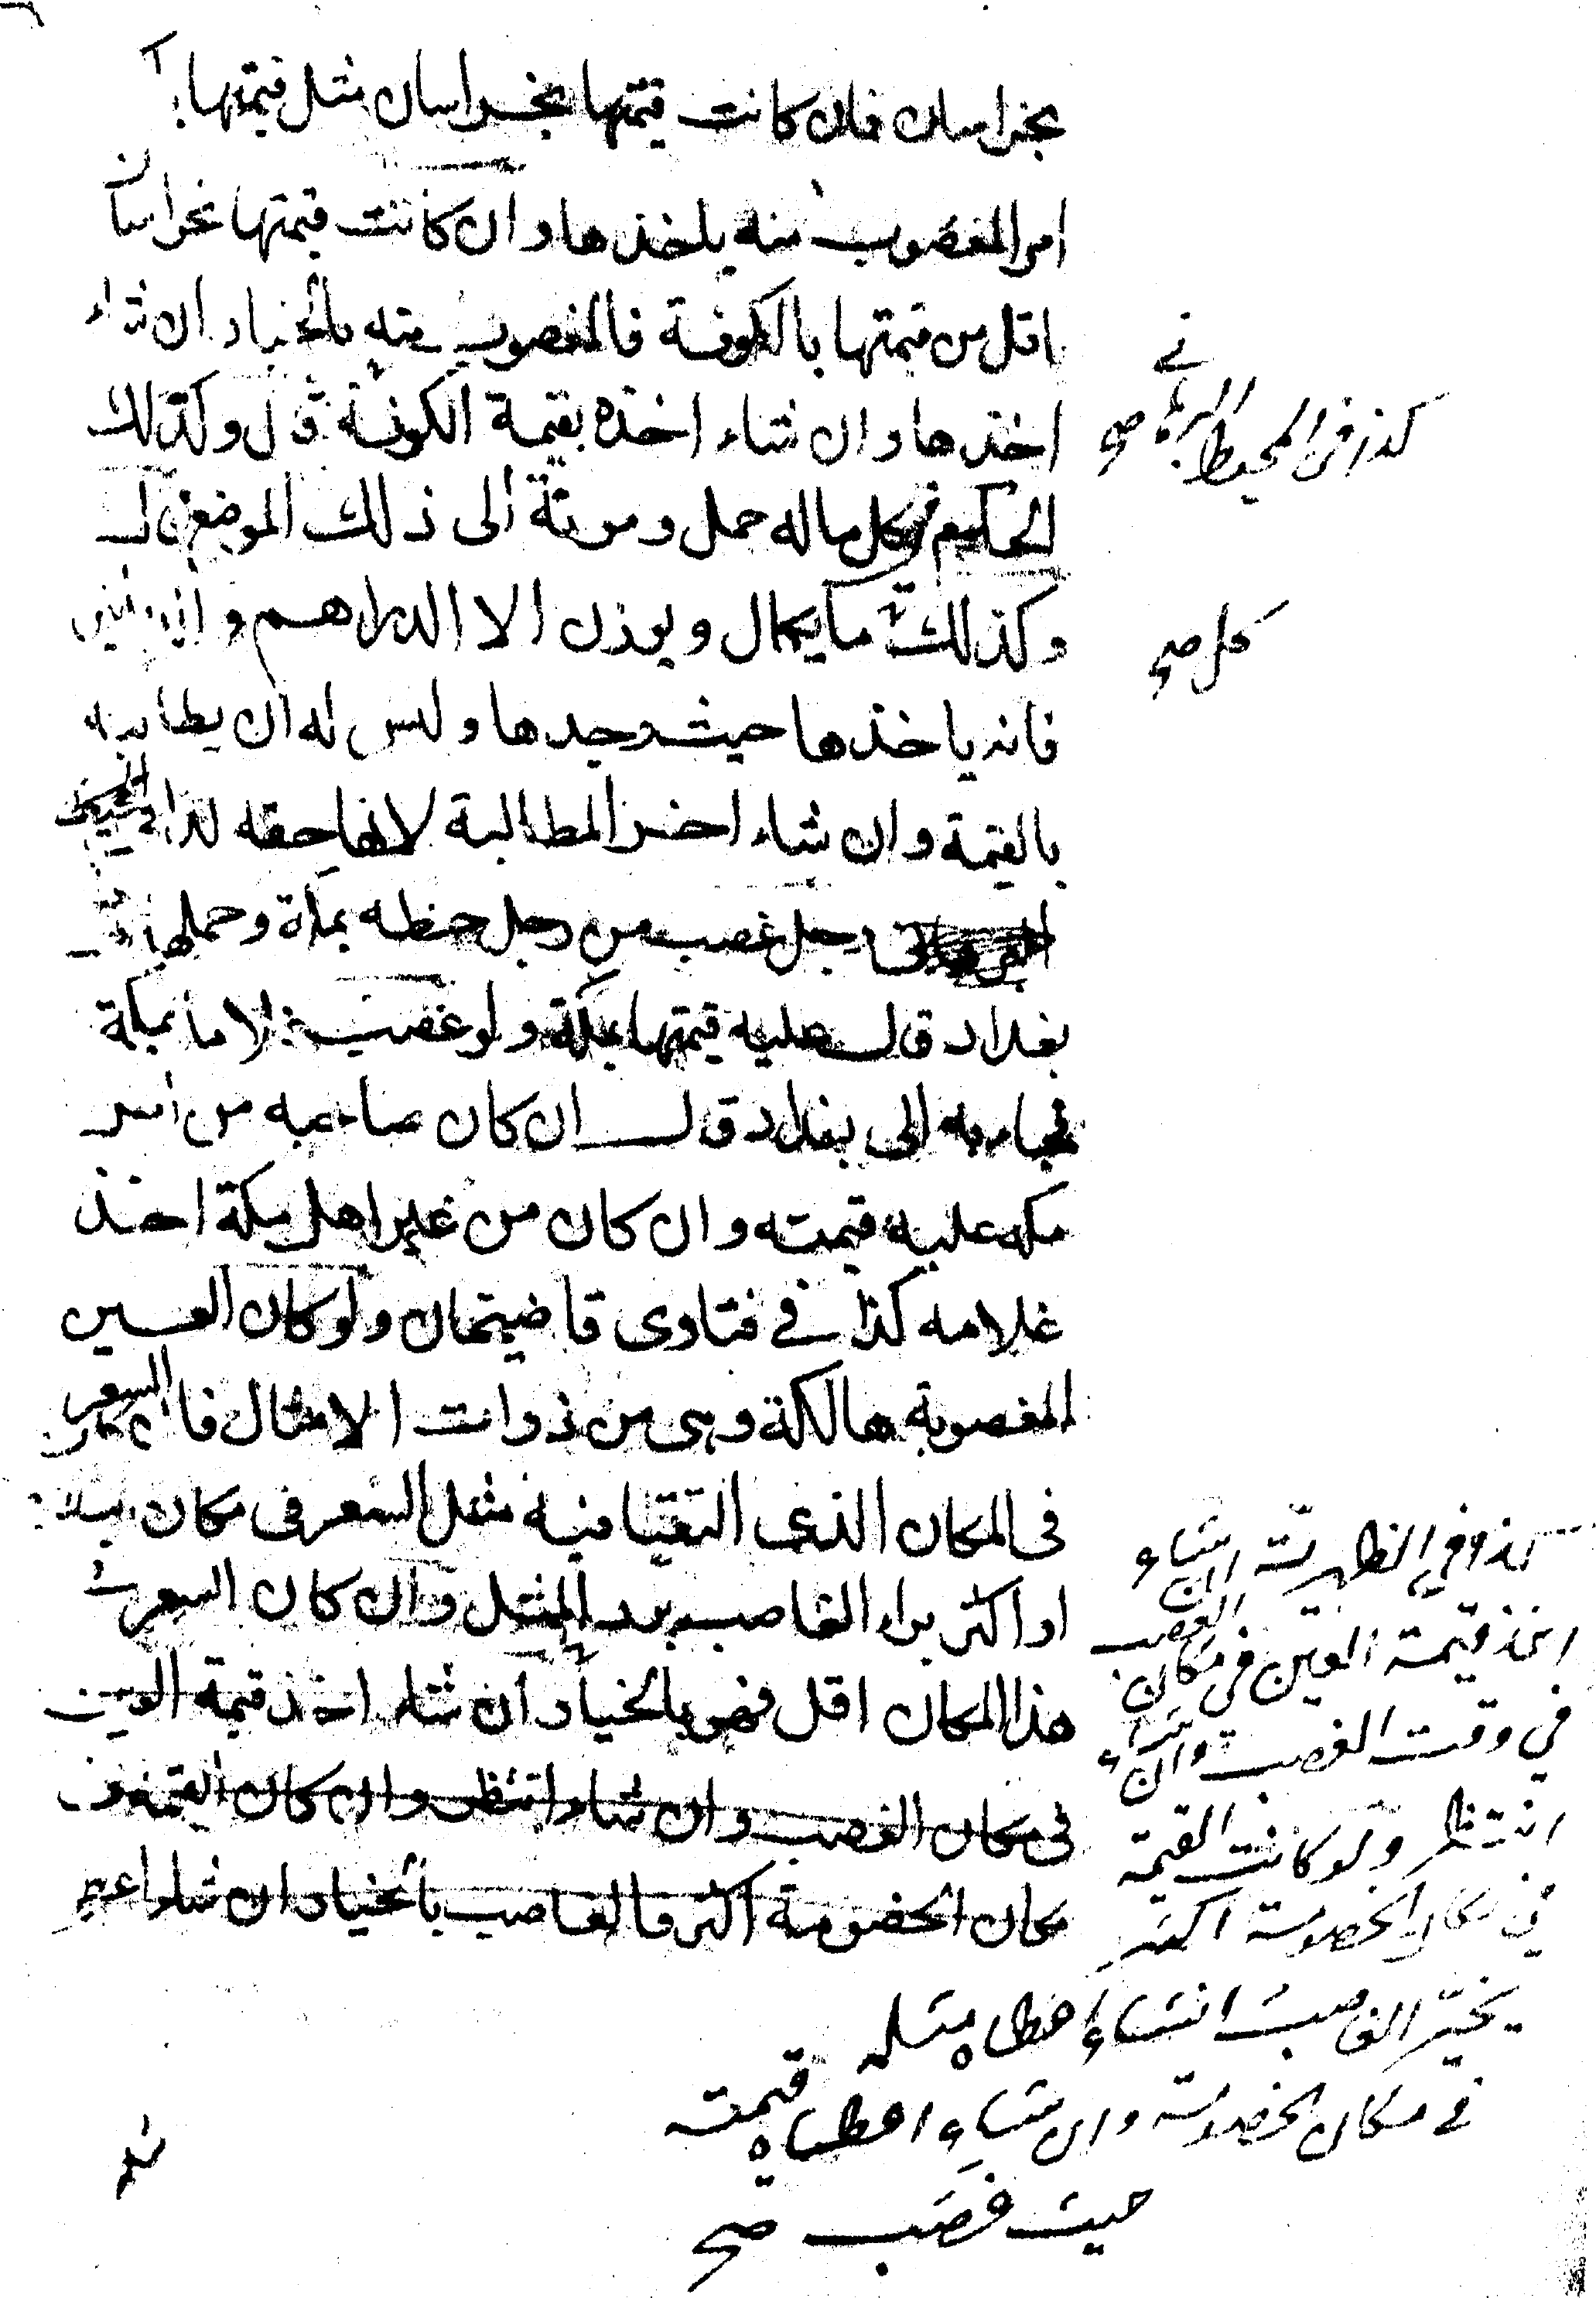 بخراسان فان كانت قيمتها بخراسان مثل قيمتها
امر المغصوب منه ياخذها وان كانت قيمتها بخراسان
اقل من قيمتها بالكوفة فالمغصوب منه بالخيار ان شاء
اخذها وان شاء اخذه بقيمة الكوفة قال وكذلك
الحكم في كل ماله حمل ومونة الى ذلك الموضع قال
وكذلك ما يكال ويوزن الا الدراهم والدنانير
فانه ياخذها حيث وجدها وليس له ان يطالبه
بالقيمة وان شاء اخر المطالبة لانها حقه كذا في المحيط
رجل غصب من رجل حنطه بمكة وحملها الى
بغداد قال عليه قيمتها بمكة ولو غصب غلاما بمكة
فجاء به الى بغداد قال ان كان صاحبه من اهل
مكه عليه قيمته وان كان من غير اهل مكة اخذ
غلامه كذا في فتاوى قاضيخان ولو كان العين
المغصوبة هالكة وهي من ذوات الامثال فان كان السعر
في المكان الذى التقيا فيه مثل السعر في مكان
او اكثر براء الغاصب برد المثل وان كان السعر في
هذا المكان اقل فهو بالخيار ان شاء اخذ قيمة العين
في مكان الغصب وان شاء انتظر وان كان القيمة في
مكان الخصومة اكثر فالغاصب بالخيار ان شاء اعطى
كذا في المحيط البرهاني صح
كل صح
كذا في الظهيرية ان شاء
اخذ قيمة العين في مكان الغصب
في وقت الغصب وان شاء
انتظر ولو كانت القيمة
في مكان الخصومة اكثر
يخير الغاصب انشاء اعطاه مثله
في مكان الخصومة وان شاء اعطاه قيمته
حيث غصب صح